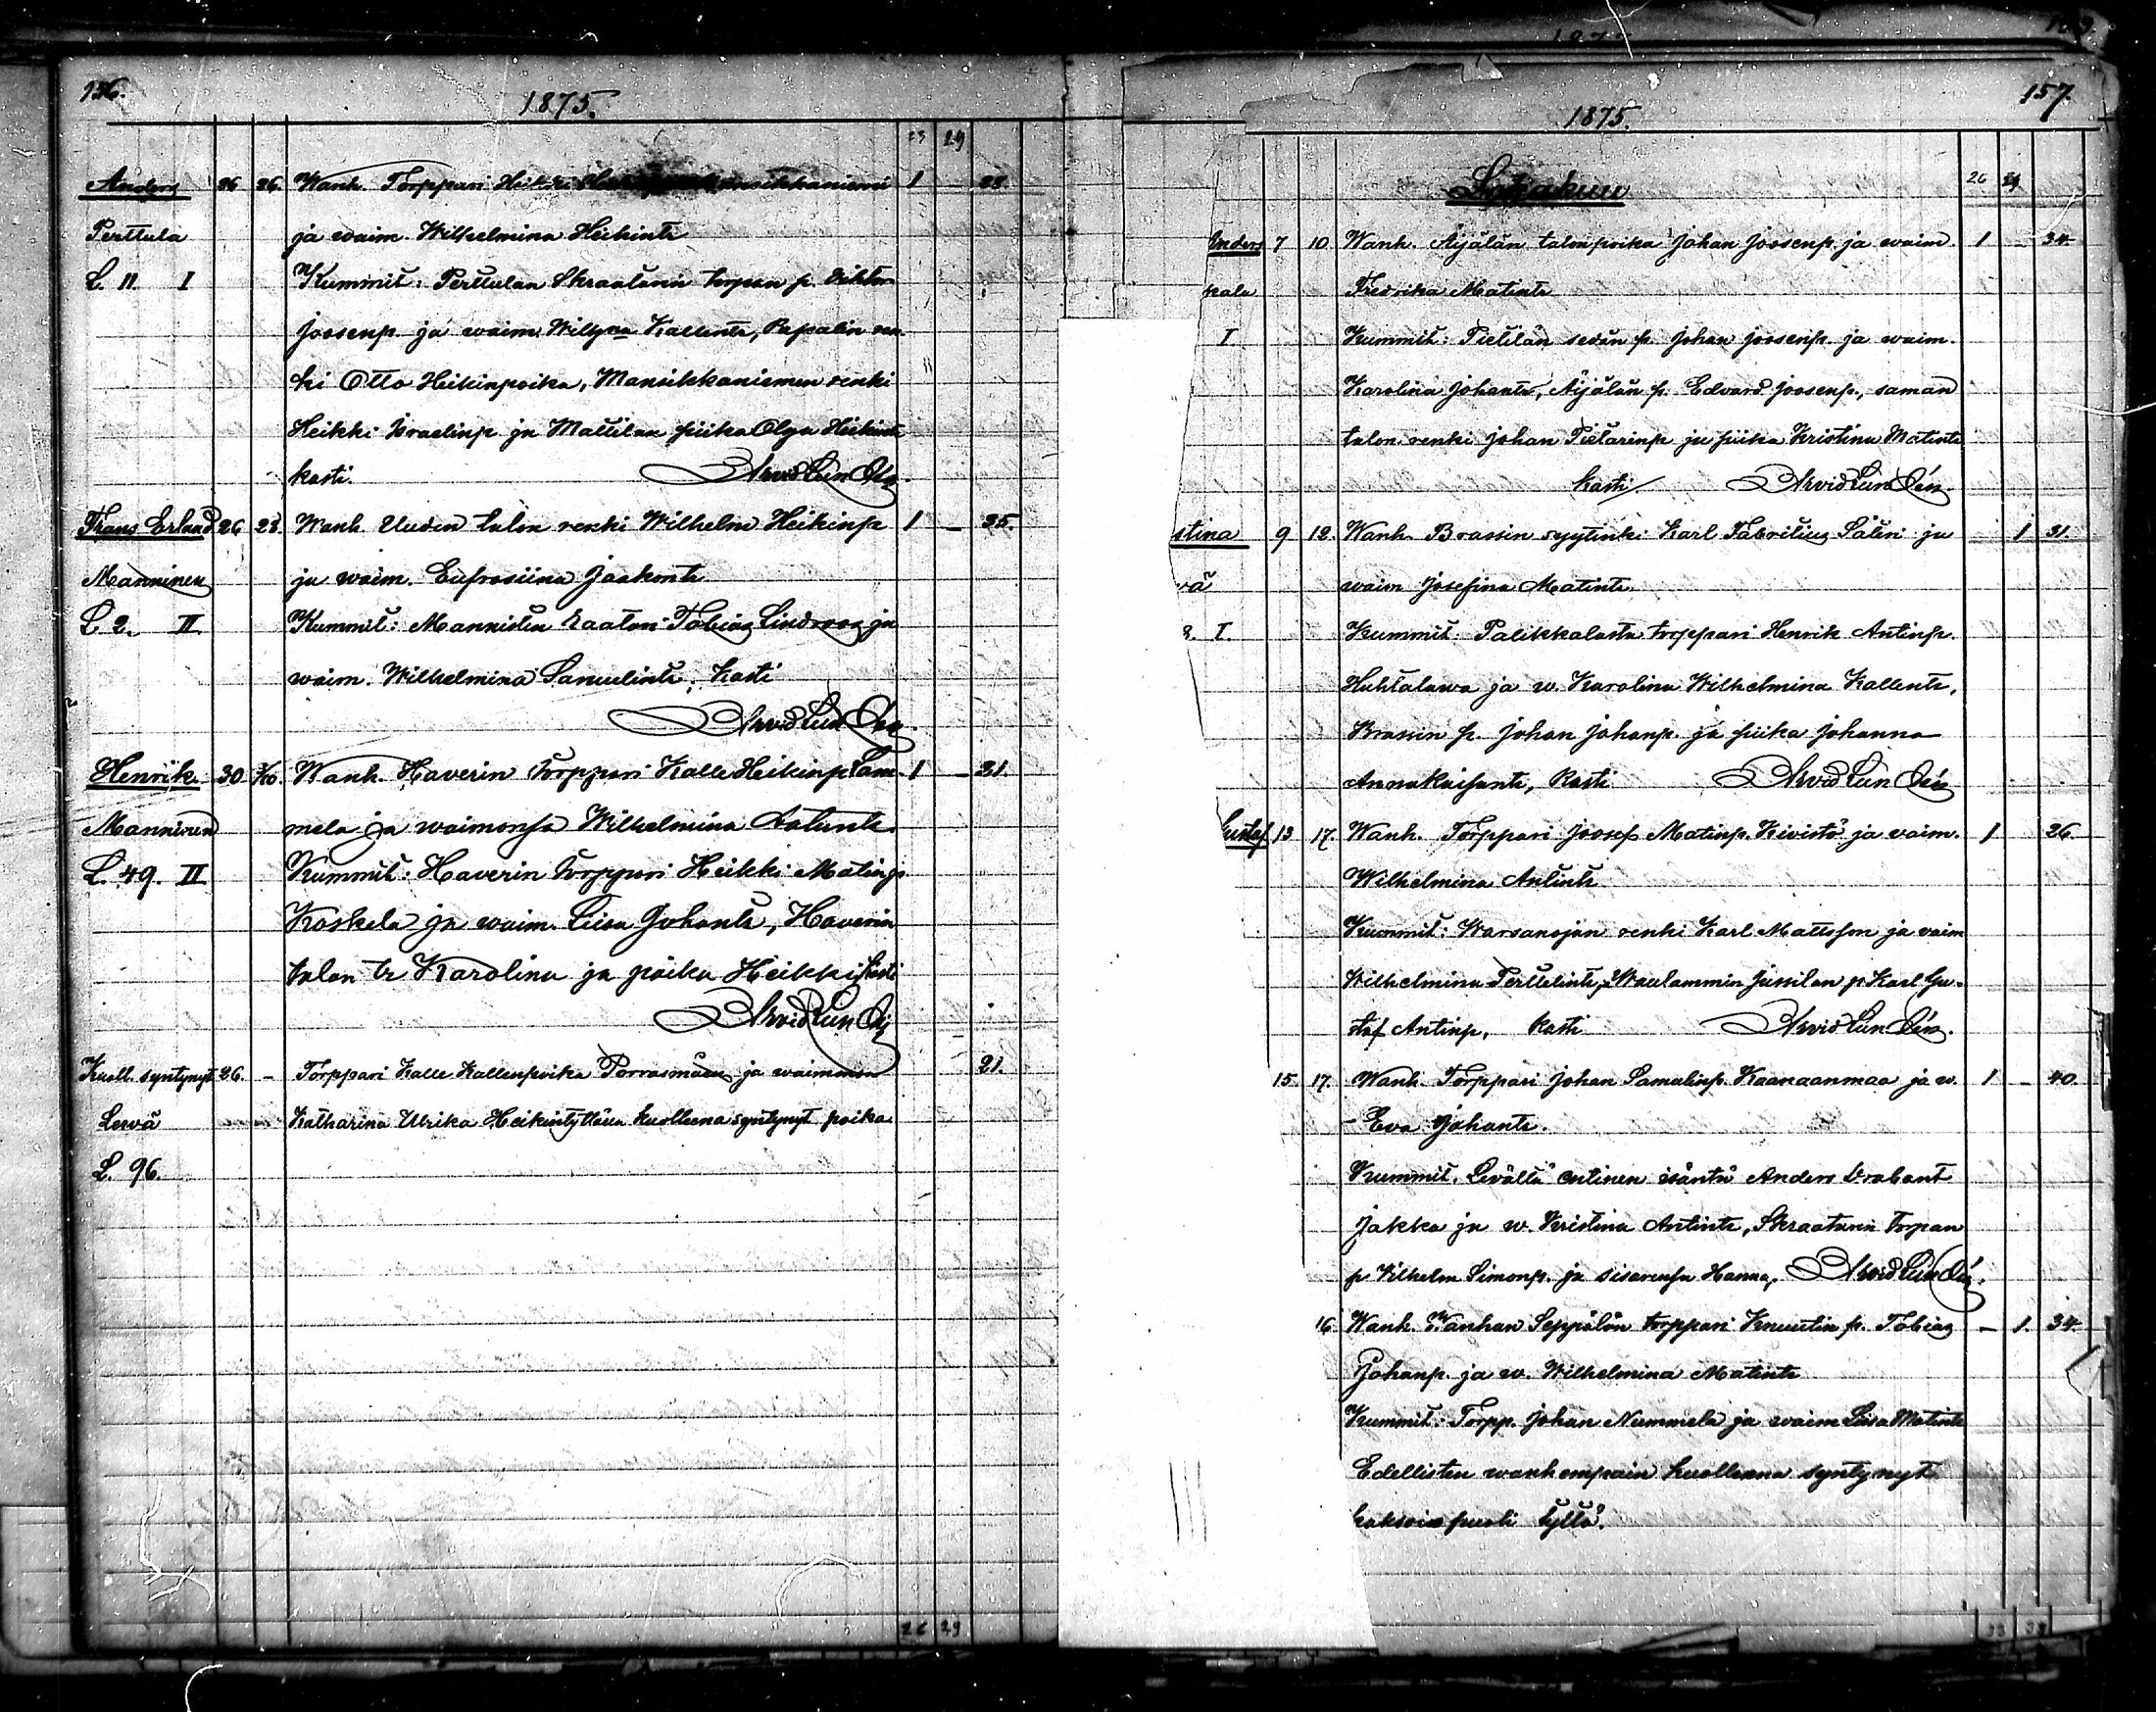 156.
1875.
23 29
Anders 26 26. Wanh. Torppari Heikki Mansikkaniemi 1 - 28.
Perttula ja waim. Wilhelmina Heikintr
L. 11. I Kummit: Perttulan Skraatarin torpan p. Viktor
Joosenp. ja waim. Willyna Kallentr, Papalin ren-
ki Otto Heikinpoika, Mansikkaniemen renki
Heikki Israelinp ja Mattilan piika Olga Heikintr
kasti. Arvid Lun
Frans Erland 26 28. Wanh. Uuden talon renki Wilhelm Heikinp 1 - 25.
Manninen ja waim. Eufrosiina Jaakontr
L. 2. II Kummit: Mannisten Tobias Lindroos ja
waim. Wilhelmina Samulintr, Kasti
Arvid Lun
Henrik 30 Wanh. Haverin torppari Kalle Heikinp Lam- 1 - 31.
Manninen mela ja waimonsa Wilhelmina
L. 49. II Kummit: Haverin torppari Heikki Matinp
Koskela ja waim. Liisa Johantr, Haverin
talon tr Karolina ja poika Heikki, Kasti
Arvid Lun
Kuoll. syntynyt 26. - Torppari Kalle Kallenpoika Porrasmäen ja waimonsa 21.
Lervä Katharina Ulrika Heikintyttären kuolleena syntynyt poika
L. 96.
26 29
157.
1875.
26 29
Lokakuu
Anders 7 10. Wanh. Äijälän talonpoika Johan Joosenp. ja waim. 1 - 34.
kala Fredrika Matintr
I Kummit: Pietilän sedän p. Johan Joosenp. ja waim.
Karolina Johantr, Äijälän p. Edvard Joosenp., saman
talon renki Johan Pietarinp ja piika Kristina Matintr
Kasti Arvid Lun
stina 9 12. Wanh. Brassin syytinki Karl Fabritius Salin ja 1 31.
vä waim Josefina Matintr.
I Kummit: Palikkalasta torppari Henrik Antinp.
Huhtalawa ja w. Karolina Wilhelmina Kallentr,
Brassin p. Johan Johanp. ja piika Johanna
Annakaisantr, Kasti Arvid Lun
Gustaf 13 17. Wanh. Torppari Joosef Matinp. Kivistö ja vaim. 1 26.
Wilhelmina Antintr
Kummit: Warsanojan renki Karl Mattsson ja vaim
Wilhelmina Perttelintr, Waulammin Jussilan p Karl Gu-
staf Antinp, Kasti Arvid Lun
15. 17. Wanh. Torppari Johan Samulinp. Kaanaanmaa ja w. 1 - 40.
Eva Johantr.
Kummit. Levältä entinen isäntä Anders Drabant
Jakka ja w. Kristina Antintr, Skraatarin torpan
p Wilhelm Simonp. ja sisarensa Hanna, Arvid Lun
16 Wanh. Wanhan Seppälän torppari Knuutin p. Tobias - 1. 34.
Johanp. ja w. Wilhelmina Matintr
Kummit: Torpp. Johan Nummela ja waim Liisa Matintr
Edellisten wanhempain kuolleena syntynyt
kaksoispuoli tyttö.
33 33